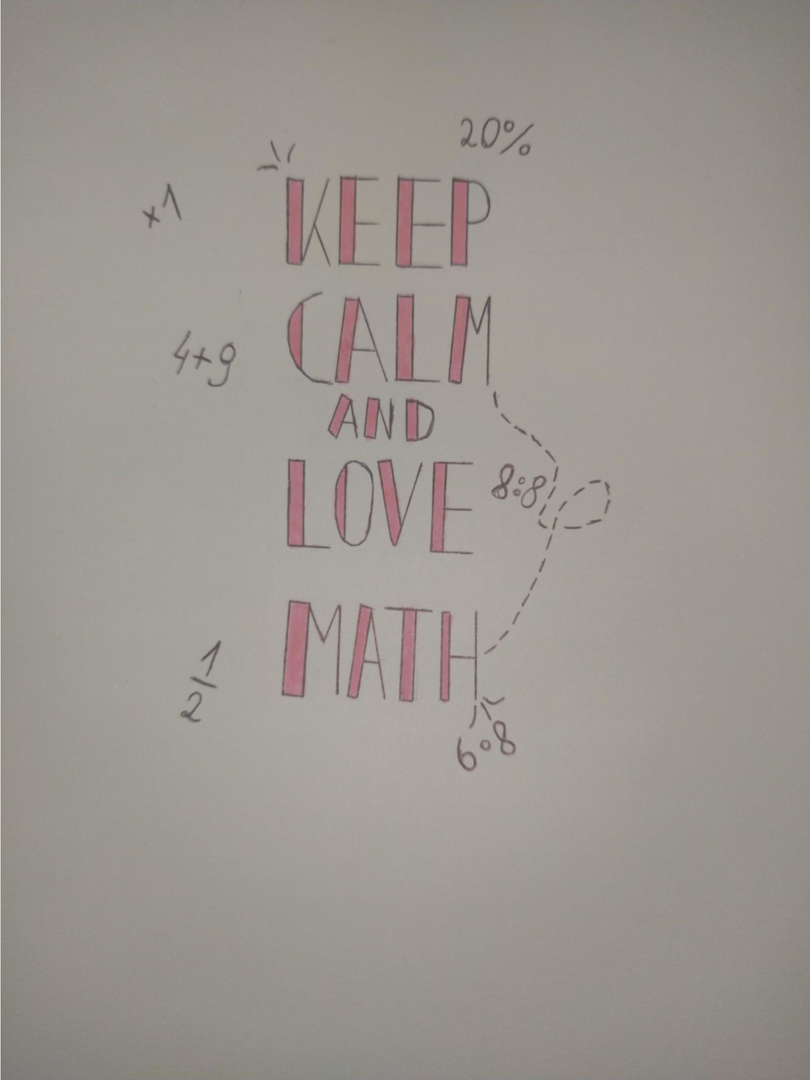 20%
×1
KEEP
4+9
CALM
AND
LOVE
8:8
MATH
1/2
6∘8